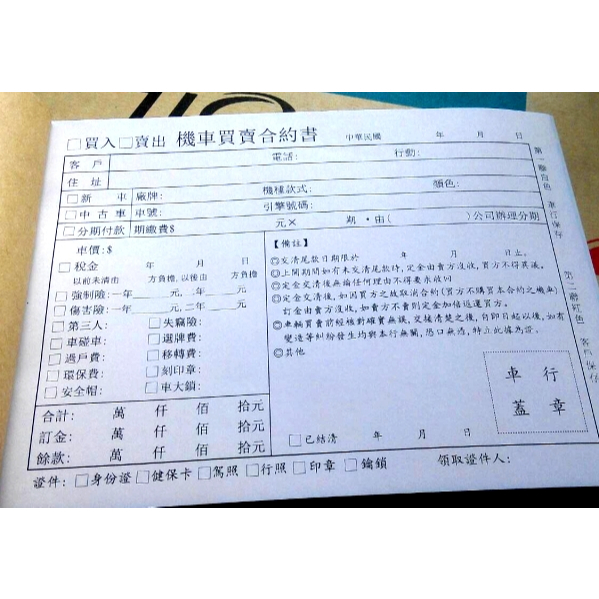 □買入□賣出 機車買賣合約書 中華民國 年 月 日
客戶 電話: 行動:
住址
□新車 廠牌: 機種款式: 顏色:
□中古車 車號: 引擎號碼:
□分期付款 期繳費$ 元× 期‧由( )公司辦理分期
車價:$
□稅金 年 月 日
以前未清由 方負擔,以後由 方負擔
□強制險:一年 元, 二年 元
□傷害險:一年 元,二年 元
□第三人: □失竊險:
□車碰車: □選牌費:
□過戶費: □移轉費:
□環保費: □刻印章:
□安全帽: □車大鎖:
合計: 萬 仟 佰 拾元
訂金: 萬 仟 佰 拾元
餘款: 萬 仟 佰 拾元
【備註】
◎交清尾款日期限於 年 月 日止。
◎上開期間如有未交清尾款時,定金由賣方沒收,買方不得異議。
◎定金交清後無論任何理由不得要求收回
◎定金交清後,如因買方之故取消合約(買方不購買本合約之機車)
訂金由賣方沒收,如賣方不賣則定金加倍返還買方。
◎車輛買賣前經核對確實無誤,交接清楚之後,自即日起以後,如有
變造等糾紛發生均與本行無關,恐口無憑,特立此據為証。
◎其他
車行
蓋章
□已結清 年 月 日
證件: □身份證 □健保卡 □駕照 □行照 □印章 □鑰鎖 領取證件人:
第一聯白色 車行保存
第二聯紅色 客戶保存